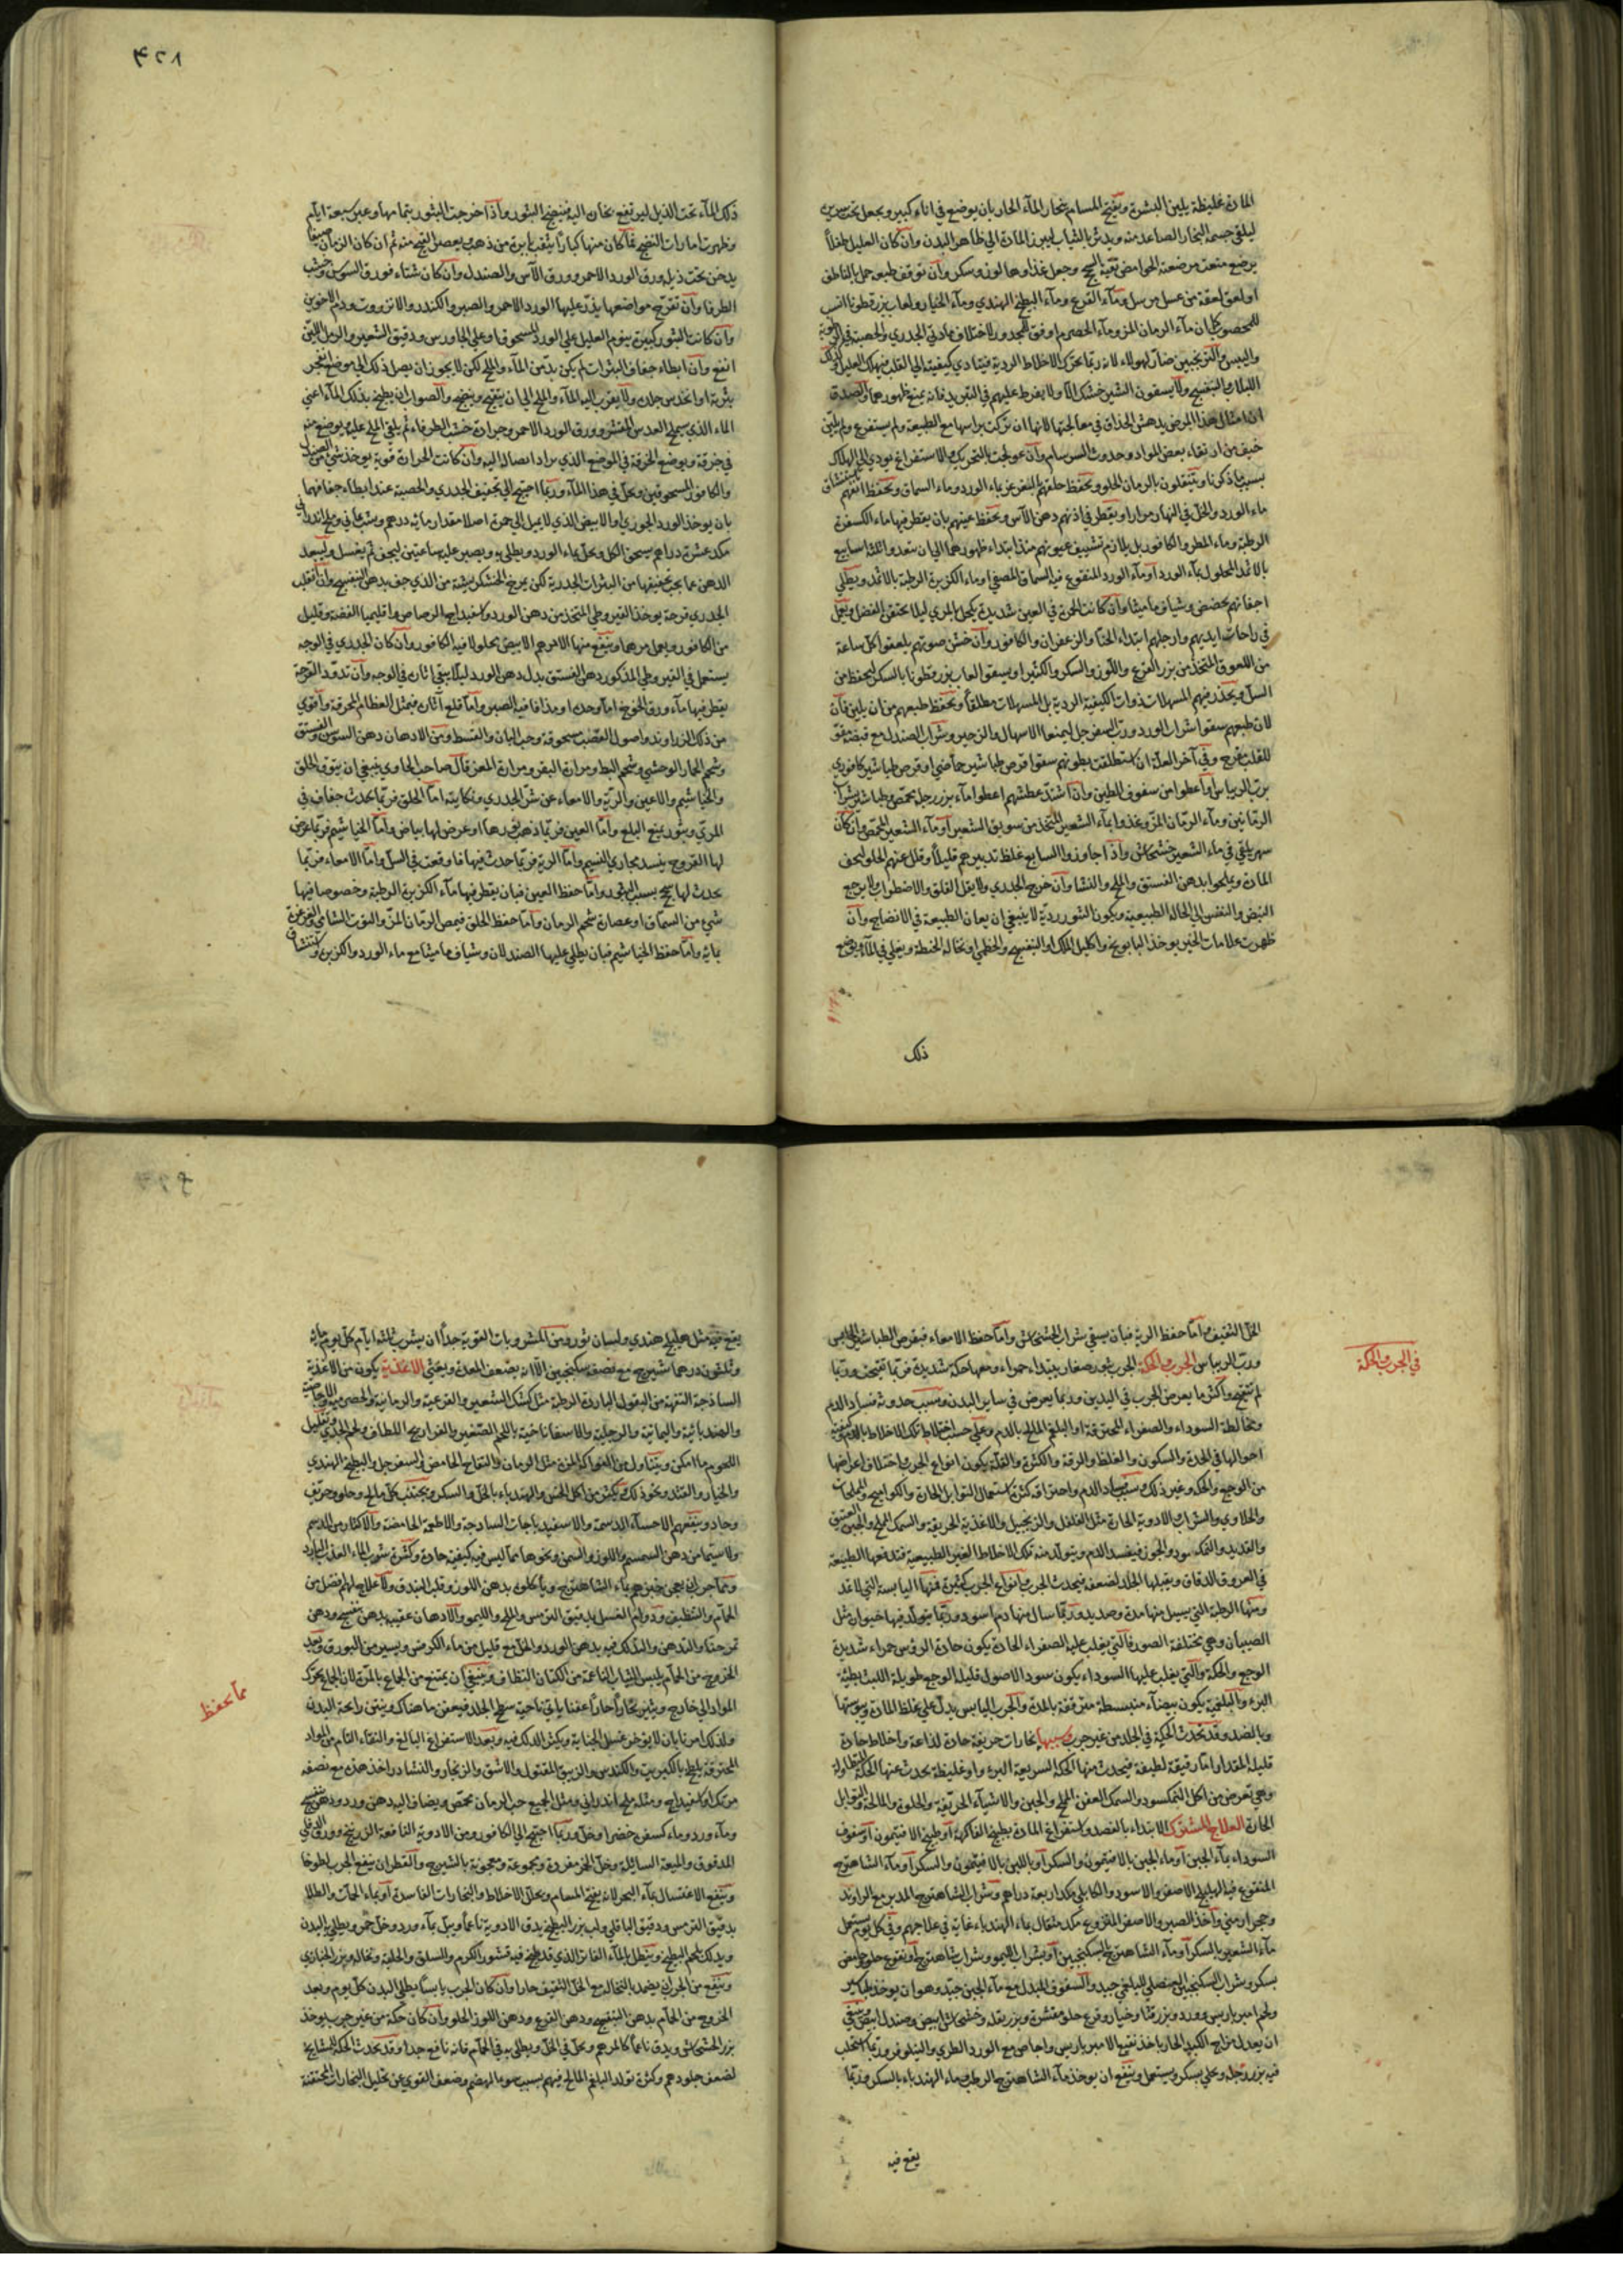 المادة غليظة يلين البشرة ويفتح المسام بخار الماء الحار بان يوضع في اناء كبير ويجعل تحت سرير
ليلقي جسمه البخار الصاعد منه ويدثر بالثياب ليبرز المادة الي ظاهر البدن وان كان العليل طفلا
يرضع منعت مرضعته الحوامض وجعل غذاوها لوز وسكر وان توقف طبعه حمل بالناطف
او لعق لعقة من عسل مرسل وماء القرع وماء البطيخ الهندي وماء الخيار ولعاب بزر قطونا انسب
للمحصوب كما ان ماء الرمان المز وماء الحصرم اوفق للمجدور لاختلاف مادتي الجدري والحصبة
والترنجبين ضار لهولاء لانه ربما يحرك الاخلاط الردية فيتادي كيفيته الي القلب فيهلك العليل
ولا يسقون الشين خشك الا ولا يفرط عليهم في التبريد فانه يمنع ظهورهما
امثال هذا المرض يدهش الحذاق في معالجتها لانها ان تركت براسها مع الطبيعة ولم يستفرغ ولم يلين
خيف من ارتقاء بعض المواد وحدوث السرسام وان عولجت بالتحريك والاستفراغ يودي الي الهلاك
بسبب ما ذكرنا ويتنقلون بالرمان الحلو ويحفظ حلقهم بالتغرغر بماء الورد وماء السماق ويحفظ انفهم
ماء الورد والخل في النهار مرارا ويقطر في اذنهم دهن الآس ويحفظ عينهم بان يقطر فيها ماء الكسفرة
الرطبة وماء المطر والكافور بل يلازم تشييف عيونهم منذ ابتداء ظهورهما الي ان يتعدوا ثلثة اسابيع
بالاثمد المحلول بماء الورد او ماء الورد المنقوع فيه السماق المصفي او ماء الكزبرة الرطبة بالاثمد ويطلي
اجفانهم بحضض وشياف ماميثا وان كانت الحمرة في العين شديدة يكحل بالمري ليلا يحتقن الفضل ويجعل
في راحات ايديهم وارجلهم ابتداء الحنا والزعفران والكافور وان خشن صوتهم يلعقوا كل ساعة
من اللعوق المتخذ من بزر القرع واللوز والسكر والكثيرا ويسقوا لعاب بزر قطونا بالسكر ليحفظ من
السل ويحذر فيهم المسهلات ذوات الكيفية الردية بل المسهلات مطلقا ويحفظ طبيعتهم من ان يلين فان
لان طبعهم سقوا شراب الورد ورب السفرجل ليمنعوا الاسهال والزحير وشراب الصندل مع قبضه مقو
للقلب مفرح وفي آخر العلة ان استطلقت بطونهم سقوا اقرص طباشير حماضي او قرص طباشير كافوري
برب الريباس واعطوا من سفوف الطين وان اشتد عطشهم اعطوا ماء بزر رجلة محمص وطباشير بشراب
الرمانين وماء الرمان المز وغذوا بماء الشعير المتخذ من سويق الشعير او ماء الشعير المحمص وان كان
سهر يلقي في ماء الشعير خشخاش واذا جاوزوا السابع غلظ تدبيرهم قليلا وقلل عنهم الحلو ليجف
المادة ويملحوا بدهن الفستق والملح والنشا وان خرج الجدري ولا يقل القلق والاضطراب ولا يرجع
النبض والنفس الي الحالة الطبيعية ويكون البثور ردية لا ينبغي ان يعان الطبيعة في الانضاج وان
ظهرت علامات الخير يوخذ البابونج واكليل الملك او البنفسج والخطمي او نخالة الحنطة ويغلي في الماء ويوضع
ذلك
٤٢٨
ذلك الماء تحت الذيل ليرتفع بخار اليه فينضج البثور واذا خرجت البثور بتمامها وعبر سبعة ايام
وظهرت امارات النضج فما كان منها كبارا يثقب بابرة من ذهب ويعصر القيح منه ثم ان كان الزمان صيفا
يدخن تحت ذيله ورق الورد الاحمر وورق الآس والصندل وان كان شتاء فورق السوس وخشب
الطرفا وان تقرح مواضعها يذر عليها الورد الاحمر والصبر والكندر والانزروت ودم الاخوين
وان كانت البثور كبيرة ينوم العليل علي الورد المسحوق او علي الجاورس ودقيق الشعير والرمل اللين
انفع وان ابطاء جفاف البثرات لم يكن بد من الماء والملح لكن لا يجوز ان يصل ذلك الي موضع انفجر
بثرته او انخدش جلده ولا يقرب اليه الماء والملح الي ان يتقيح وينضج والصواب ان يطبخ بذلك الماء اعني
الماء الذي يملح العدس المقشر وورق الورد الاحمر وجرادة خشب الطرفاء ثم يلقي الملح عليه ويوضع منه
في خرقة ويوضع الخرقة في الموضع الذي يراد ايصاله اليه وان كانت الحرارة قوية يوخذ شي من الصندل
والكافور المسحوقين ويحل في هذا الماء وربما احتيج الي تجفيف الجدري والحصبة عند ابطاء جفافهما
بان يوخذ الورد الجوري او الابيض الذي لا يميل الي حمرة اصلا مقدار مائة درهم وشب يماني وملح اندراني
مكد عشرة دراهم يسحق الكل ويحل بماء الورد ويطلي به ويصبر عليه ساعتين ليجف ثم يغسل وليبعد
الدهن عما يجب تجفيفها من البثرات الجدرية لكن يمرخ الخشكريشة من الذي جف بدهن البنفسج وان انقلب
الجدري قرحة يوخذ القيروطي المتخذ من دهن الورد واسفيداج الرصاص واقليميا الفضة وقليل
من الكافور ويعمل مرهما وينفع منها المرهم الابيض محلولا فيه الكافور وان كان الجدري في الوجه
يستعمل في القيروطي المذكور دهن الفستق بدل دهن الورد ليلا يبقي آثاره في الوجه وان تدود القرحة
يقطر فيها ماء ورق الخوخ اما وحده او مذافا فيه الصبر واما قلع آثاره فبمثل العظام المحرقة واقوي
من ذلك الزراوند واصول القصب مسحوقة وحب البان والقسط ومن الادهان دهن السوس والفستق
وشحم الحمار الوحشي وشحم البط ومرارة البقر ومرارة المعز قال صاحب الحاوي ينبغي ان يتوقي الحلق
والخياشيم والاعين والرية والامعاء عن شر الجدري ونكايته اما الحلق فربما يحدث جفاف في
المري وبثور يمنع البلع واما العين فربما ذهب نورها او عرض لها بياض واما الخياشيم فربما عرض
لها القروح ينسد مجاري النسيم واما الرية فربما حدث فيها فاوقعت في السل واما الامعاء فربما
يحدث لها سحج بسبب البثور واما حفظ العين فبان يقطر فيها ماء الكزبرة الرطبة وخصوصا فيها
شي من السماق او عصارة شحم الرمان واما حفظ الحلق فبمص الرمان المز والتوت الشامي والغرغرة
بمائه واما حفظ الخياشيم فبان يطلي عليها الصندلان وشياف ماميثا مع ماء الورد والكزبرة واستنشاق
في الجرب والحكة
الخل الثقيف واما حفظ الرية فبان يسقي شراب الخشخاش واما حفظ الامعاء فبقرص الطباشير الحامض
ورب الريباس الجرب والحكة الجرب بثور صغار يبتداء حمراء ومعها حكة شديدة فربما تقيحت وربما
لم تتقيح واكثر ما يعرض الجرب في اليدين وربما يعرض في ساير البدن وسبب حدوثه فساد الدم
ومخالطة السوداء والصفراء المحترقة او البلغم المالح بالدم وعلي حسب اختلاط تلك الاخلاط بالدم
احوالها في الحدة والسكون والغلظ والرقة والكثرة والقلة يكون انواع الجرب واختلاف اعراضها
من الوجع والحكة وغير ذلك وسبب فساد الدم واحتراقه كثرة استعمال التوابل الحارة والكواميخ والملوحات
والحلاوي والشراب والادوية الحارة مثل الفلفل والزنجبيل والاغذية الحريفة والسمك المملح والجبن العتيق
والقديد والنمكسود والجوز فيفسد الدم ويتولد منه تلك الاخلاط الغير الطبيعية فتدفعها الطبيعة
في العروق الدقاق ويقبلها الجلد لضعفه فيحدث الجرب وانواع الجرب كثيرة فمنها اليابسة التي لا تمد
ومنها الرطبة التي يسيل منها مدة وصديد وربما سال منها دم اسود وربما يتولد فيها حيوان مثل
الصيبان وهي مختلفة الصور فالتي يغلب عليه الصفراء الحادة يكون حادة الروس حمراء شديدة
الوجع والحكة والتي يغلب عليها السوداء يكون سود الاصول قليل الوجع طويلة اللبث بطيئة
البرء والبلغمية يكون بيضاء منبسطة متفرقة بالمدة والجرب اليابس يدل علي غلظ المادة ويبوستها
وبالضد وقد تحدث الحكة في الجلد من غير جرب وسببها بخارات حريفة حادة لذاعة واخلاط حادة
قليلة المقدار اما رقيقة لطيفة فيحدث منها الحكة السريعة البرء او غليظة يحدث عنها الحكة المتطاولة
وهي تعرض من اكل النمكسود والسمك العفن المملح والجبن والاشياء الحريفة والحلوة والمالحة والتوابل
الحارة العلاج المشترك الابتداء بالفصد واستفراغ المادة بطبيخ الفاكهة او طبيخ الافتيمون او سفوف
السوداء بماء الجبن او ماء الجبن بالافتيمون والسكر او باللبن بالافتيمون والسكر او ماء الشاهترج
المنقوع فيه الهليلج الاصفر والاسود والكابلي مكد اربعة دراهم وشراب الشاهترج المدبر مع الراوند
وحجر ارمني واخذ الصبر والاصفر المنزوع مكد مثقال بماء الهندباء غاية في علاجهم وفي كل يوم يستعمل
ماء الشعير بالسكر او ماء الشاهترج بالسكنجبين او بشراب الليمو وشراب شاهترج او نقوع حلو حامض
بسكر وشراب السكنجبين العنصلي للبلغمي جيد والسفوف المبدل مع ماء الجبن جيد وهو ان يوخذ طباشير
ولحم امبرباريس وورد وبزر قثا وخيار وقرع حلو مقشرة وبزر بقلة وخشخاش ابيض وصندل ابيض
ان يعدل مزاج الكبد الحار باخذ نقيع الامبرباريس واجاص مع الورد الطري والنيلوفر وربما استحلب
فيه بزر رجلة وحلي بسكر ويستعمل وينفع ان يوخذ ماء الشاهترج الرطب وماء الهندباء بالسكر وربما
يقع فيه
يقع فيه مثل هليلج هندي ولسان ثور ومن المشروبات القوية جدا ان يشرب ثلثة ايام كل يوم مائة
وثلثون درهما شيرج مع نصفه سكنجبين الا انه يضعف المعدة ويغثي الاغذية يكون من الاغذية
الساذجة التفهة من البقول الباردة الرطبة مثل كشك الشعير والقرعية والرمانية والحصرمية والاجاصية
والهندبائية واليمانية والرجلية والاسفاناخية باللحم الصغير والفراريج اللطاف ولحم الجدي وتقليل
اللحوم ما امكن ويتناول من الفواكه المزة مثل الرمان والتفاح الحامض والسفرجل والبطيخ الهندي
والخيار والقثد ونحو ذلك ويكثر من اكل الخس والهندباء بالخل والسكر ويجتنب كل مالح وحلو وحريف
وحاد وينفعهم الاحساء الدسمة والاسفيدباجات الساذجة والاطعمة الحامضة والاكثار من الدسم
ولا سيما من دهن السمسم واللوز والسمن ونحوها مما ليس فيه كيفية حادة وكثرة شرب الماء العذب البارد
ومما جرب ان يعجن خبزهم بماء الشاهترج وياكلون بدهن اللوز وقلب البندق ولا علاج لهم افضل من
الحمام والتنظيف ودوام الغسل بدقيق الترمس والملح والليمو والادهان عقيبه بدهن بنفسج ودهن
تمرحنا والتدهن والتدلك فيه بدهن الورد والخل مع قليل من ماء الكرفس ويسير من البورق وبعد
الخروج من الحمام يلبس الثياب الناعمة من الكتان النظاف وينبغي ان يمتنع من الجماع بالمرة لان الجماع يحرك
المواد الي خارج ويثير بخارا حارا عفنا ياتي ناحية سطح الجلد فيعفن ما هناك وينتن رائحة البدن
ولذلك امرنا بان لا يوخر غسل الجنابة ويكثر الدلك فيه وبعد الاستفراغ البالغ والنقاء التام من المواد
المحترقة يلطخ بالكبريت والكندس والزيبق المقتول والاشق والزنجار والنشادر اخذ هذه مع نصفه
مرتك او اسفيداج ومثله ملح اندراني ومثل الجميع حب الرمان محمص ويضاف اليه دهن ورد ودهن بنفسج
وماء ورد وماء كسفرة خضرا وخل وربما احتيج الي الكافور ومن الادوية النافعة الزرنيخ وورق الدفلي
المدقوق والميعة السايلة وخل الخمر مفردة ومجموعة ومعجونة بالشيرج والقطران ينفع الجرب لطوخا
وينفع الاغتسال بماء البحر لانه يفتح المسام ويحلل الاخلاط والبخارات الفاسدة او بماء الحمات والطلا
بدقيق الترمس ودقيق الباقلي ولب بزر البطيخ يدق الادوية ناعما ويبل بماء ورد وخل خمر ويطلي به البدن
ويدلك بلحم البطيخ وينطل بالماء الفاتر الذي قد طبخ فيه قشور الكرم والسلق والحلبة ونخالة وبزر الخبازي
وينفع من الجرب ان يضمد بالنخالة مع الخل الثقيف حارا وان كان الجرب يابسا يطلي البدن كل يوم وبعد
الخروج من الحمام بدهن البنفسج ودهن القرع ودهن اللوز الحلو وان كان حكة من غير جرب يوخذ
بزر الخشخاش ويدق ناعما كالمرهم ويحل في الخل ويطلي به في الحمام فانه نافع جدا وقد تحدث الحكة للمشايخ
لضعف جلودهم وكثرة تولد البلغم المالح فيهم بسبب سوء الهضم وضعف القوي عن تحليل البخارات المحتقنة
مما يحفظ